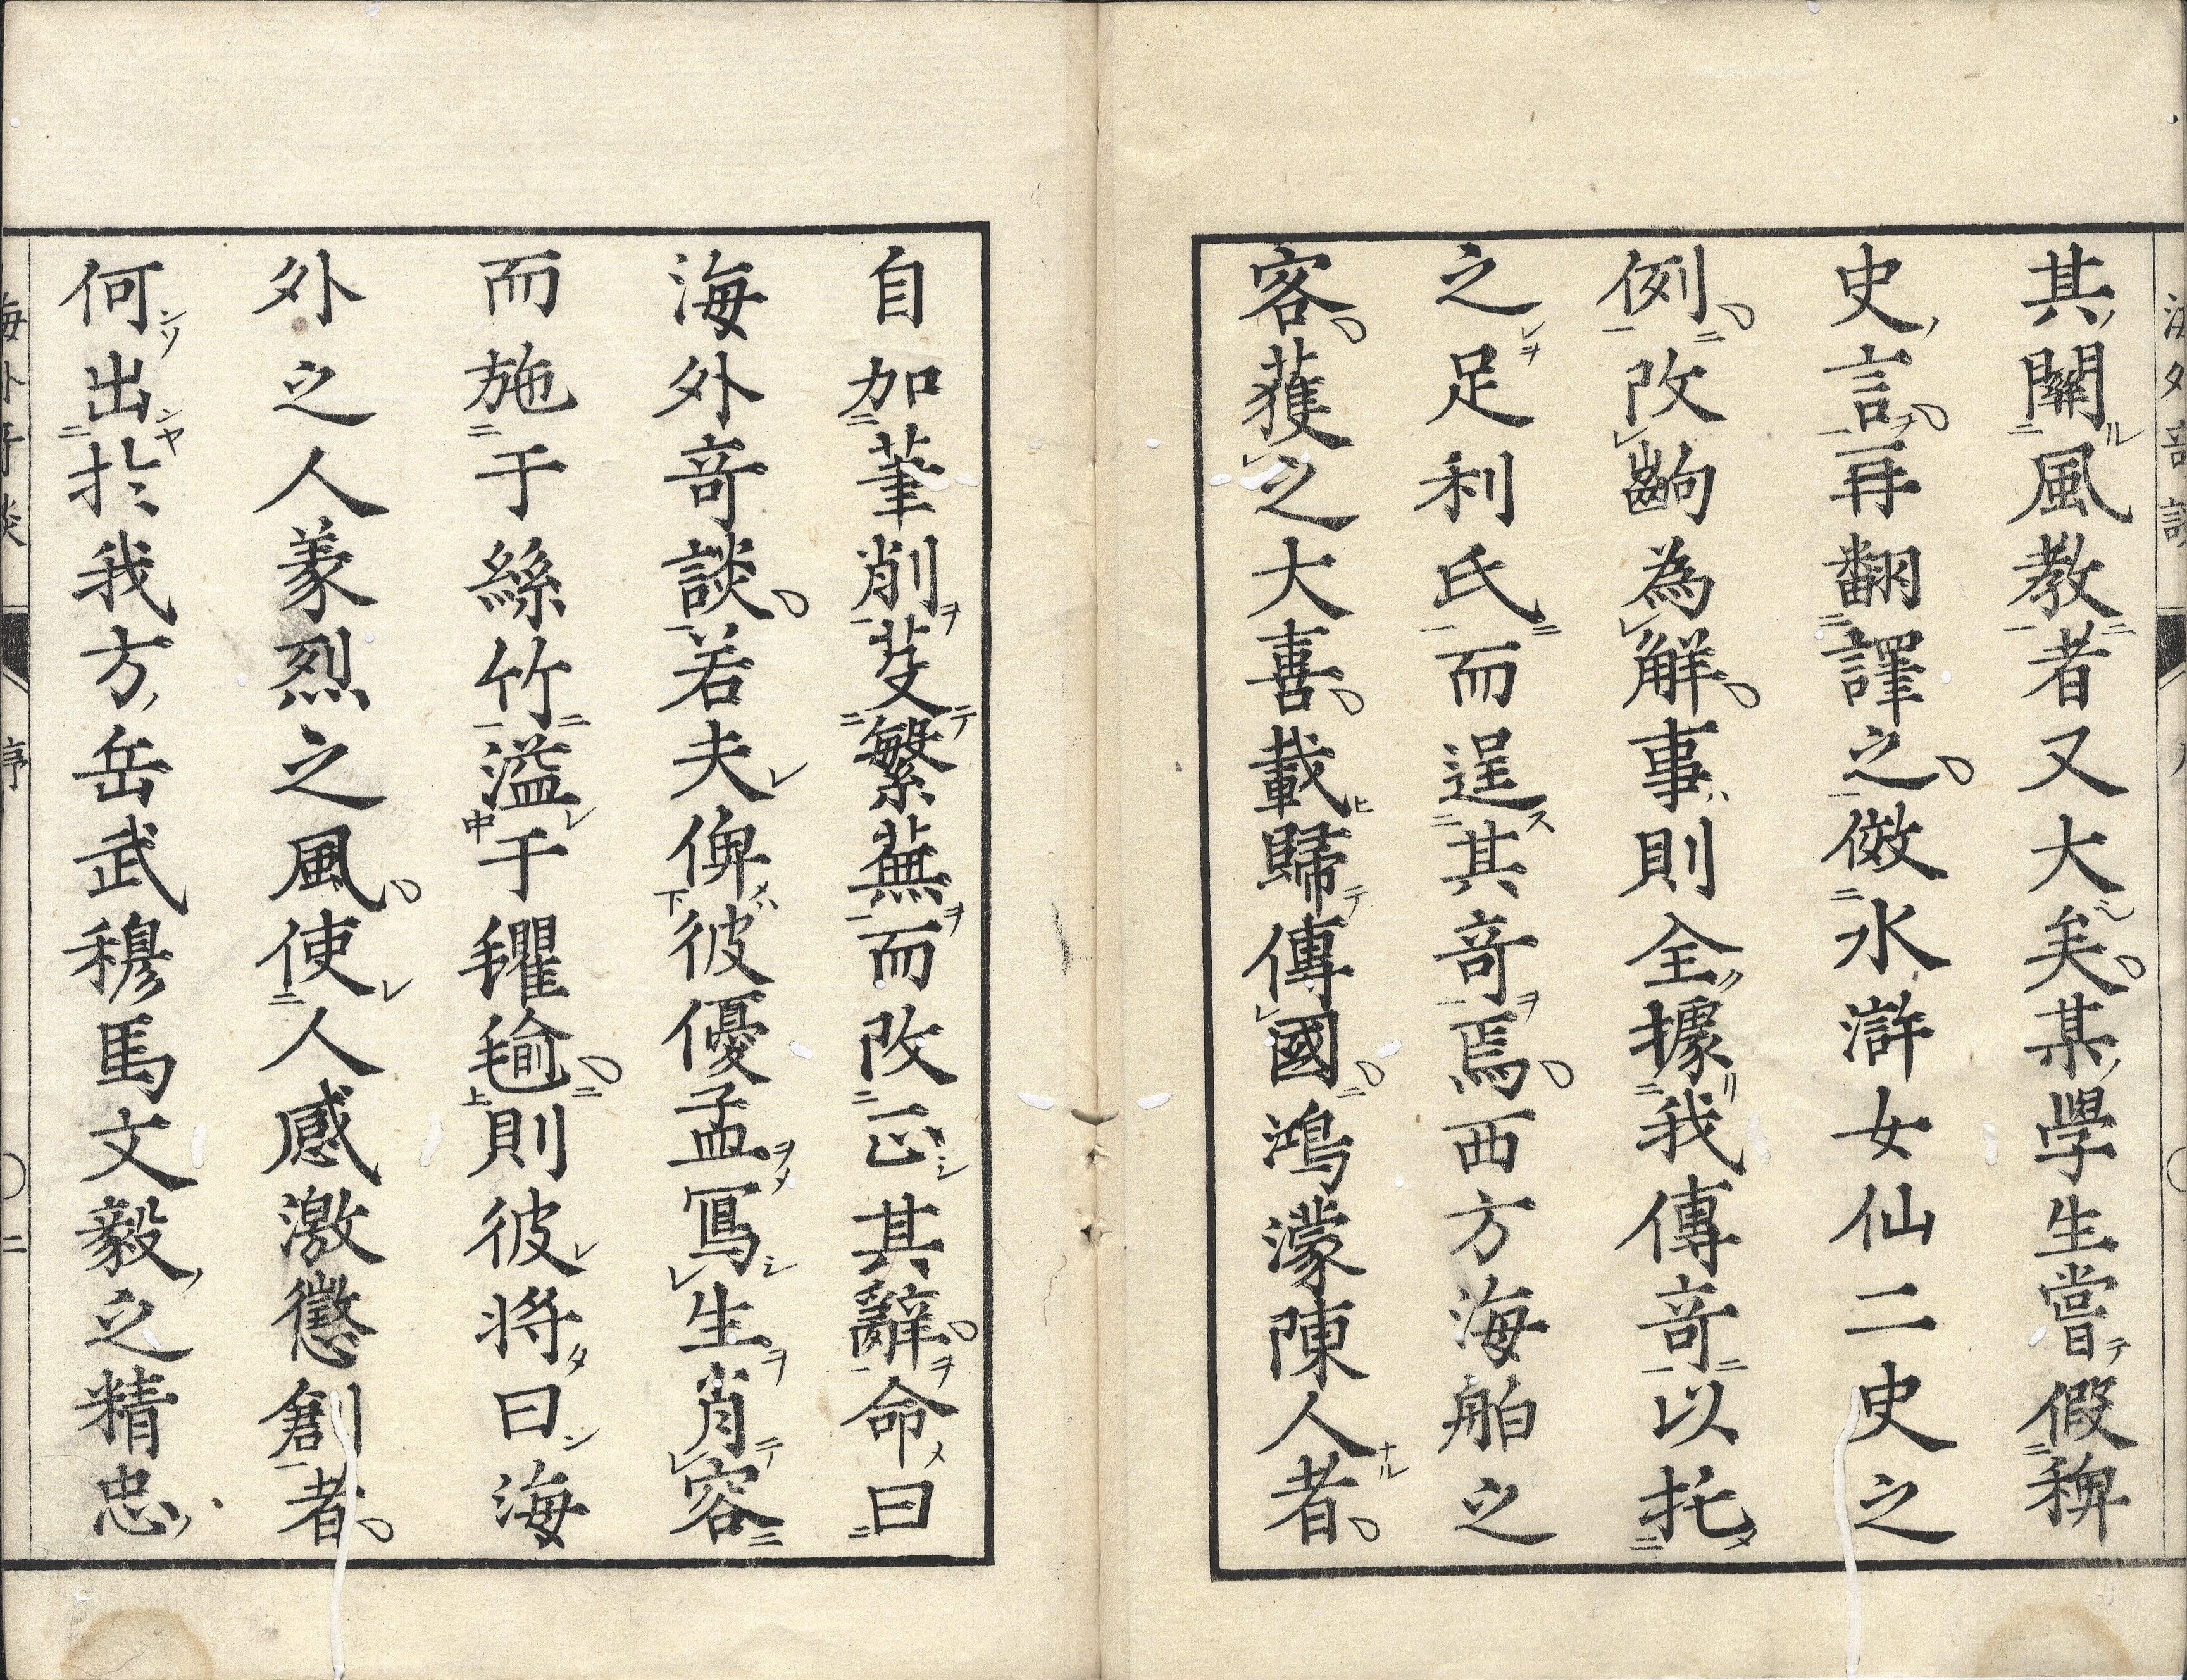 其關風教者又大矣某學生嘗假稗
史言再翻譯之傚水滸女仙二史之
例改齣為解事則全據我傳竒以托
之足利氏而逞其竒焉西方海舶之
客獲之大喜載歸傳國鴻濛陳人者
自加筆削芟繁蕪而改正其辭命曰
海外竒談若夫俾彼優孟寫生肖容
而施于絲竹溢于氍毹則彼将曰海
外之人義烈之風使人感激懲創者
何出於我方岳武穆馬文毅之精忠
序
二